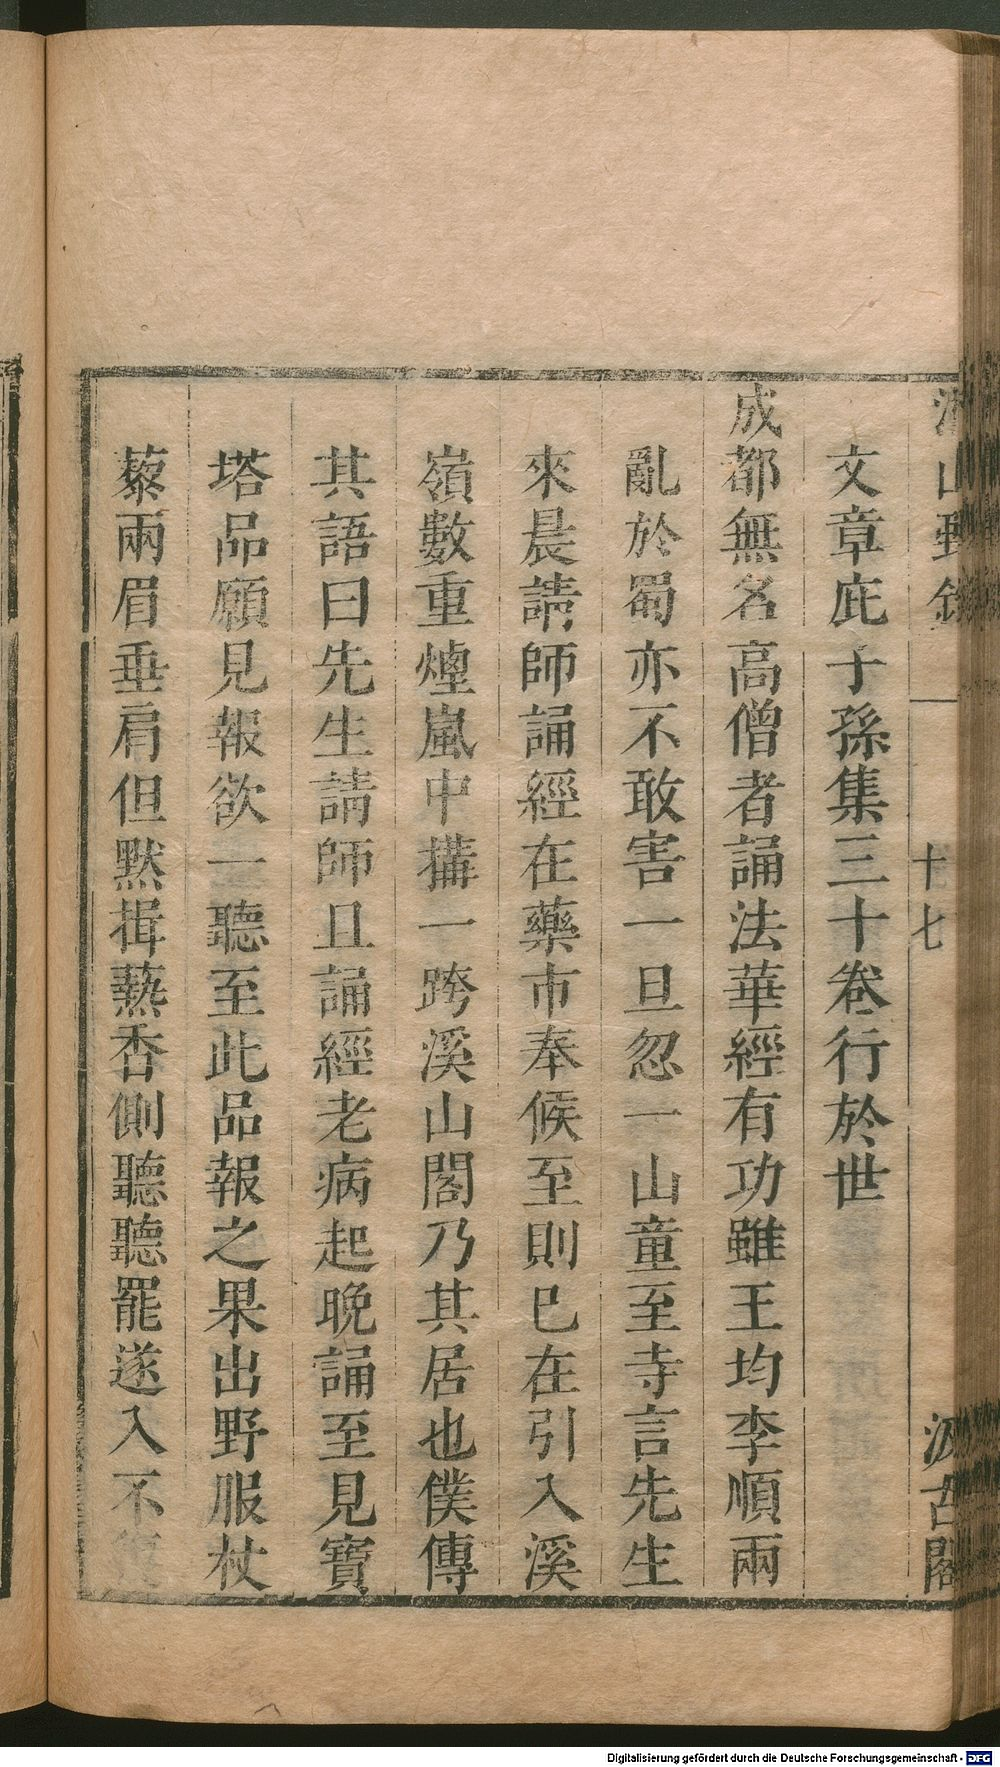 湘山野錄 一 十七 汲古閣
文章庇子孫集三十卷行於世
成都無名高僧者誦法華經有功雖王均李順兩
亂於蜀亦不敢害一旦忽一山童至寺言先生
來晨請師誦經在藥市奉候至則已在引入溪
嶺數重煙嵐中搆一跨溪山閣乃其居也僕傳
其語曰先生請師且誦經老病起晚誦至見寶
塔品願見報欲一聽至此品報之果出野服杖
藜兩眉垂肩但默揖爇香側聽聽罷遂入不
Digitalisierung gefördert durch die Deutsche Forschungsgemeinschaft - DFG